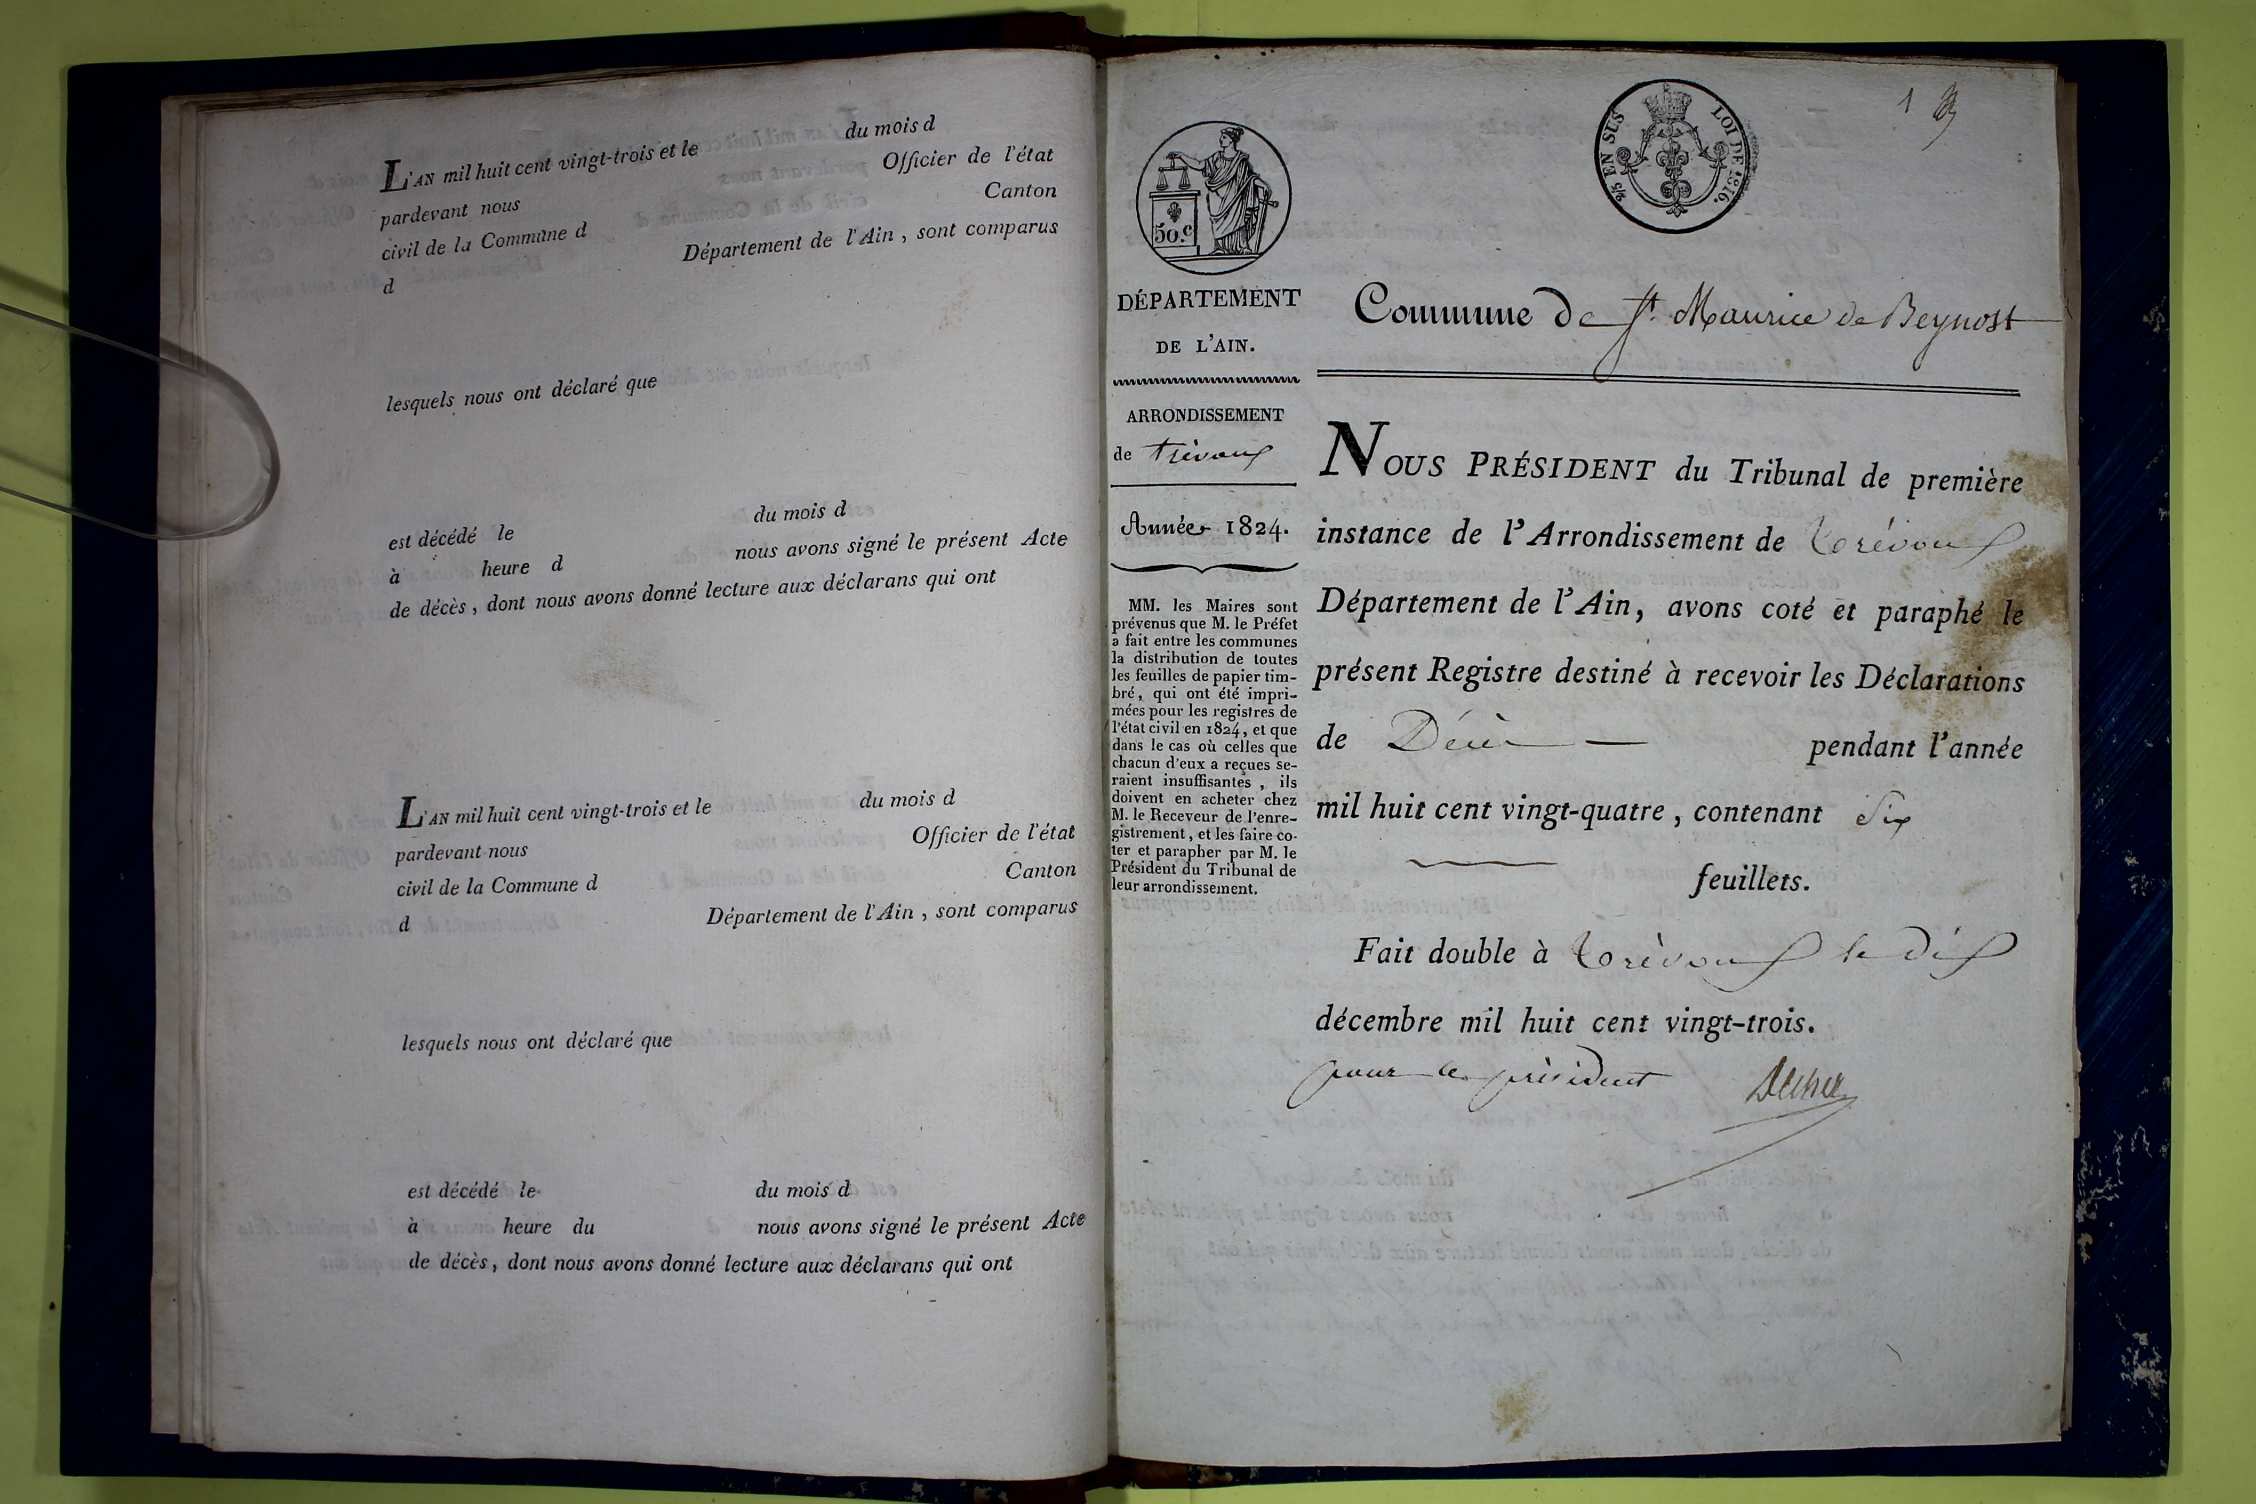 L'AN mil huit cent vingt-trois et le du mois d
pardevant nous Officier de l'état
civil de la Commune d Canton
d Département de l'Ain, sont comparus
lesquels nous ont déclaré que
est décédé le du mois d
à heure d nous avons signé le présent Acte
de décès, dont nous avons donné lecture aux déclarans qui ont
L'AN mil huit cent vingt-trois et le du mois d
pardevant nous Officier de l'état
civil de la Commune d Canton
d Département de l'Ain, sont comparus
lesquels nous ont déclaré que
est décédé le du mois d
à heure du nous avons signé le présent Acte
de décès, dont nous avons donné lecture aux déclarans qui ont
50.c
2/5 EN SUS LOI DE 1816.
1
DÉPARTEMENT
DE L'AIN.
ARRONDISSEMENT
de trévoux
Année 1824.
MM. les Maires sont
prévenus que M. le Préfet
a fait entre les communes
la distribution de toutes
les feuilles de papier tim-
bré, qui ont été impri-
mées pour les registres de
l'état civil en 1824, et que
dans le cas où celles que
chacun d'eux a reçues se-
raient insuffisantes, ils
doivent en acheter chez
M. le Receveur de l'enre-
gistrement, et les faire co-
ter et parapher par M. le
Président du Tribunal de
leur arrondissement.
Commune de St. Maurice de Beynost
NOUS PRÉSIDENT du Tribunal de première
instance de l'Arrondissement de Trévoux
Département de l'Ain, avons coté et paraphé le
présent Registre destiné à recevoir les Déclarations
de Décès pendant l'année
mil huit cent vingt-quatre, contenant Six
feuillets.
Fait double à Trévoux le dix
décembre mil huit cent vingt-trois.
pour le président